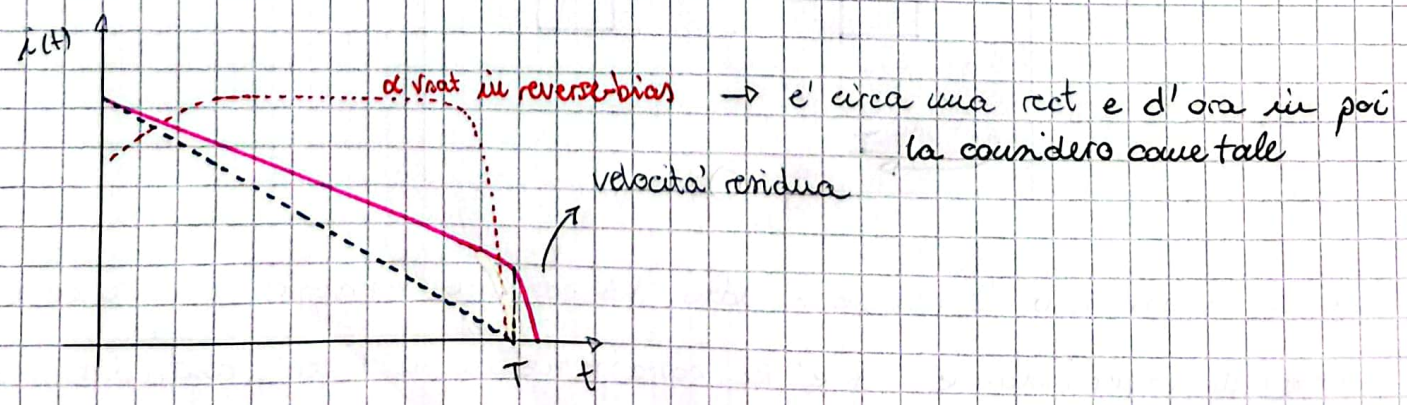 i(t)
α vsat in reverse-bias → e' circa una rect e d'ora in poi
la considero come tale
velocita' residua
T t